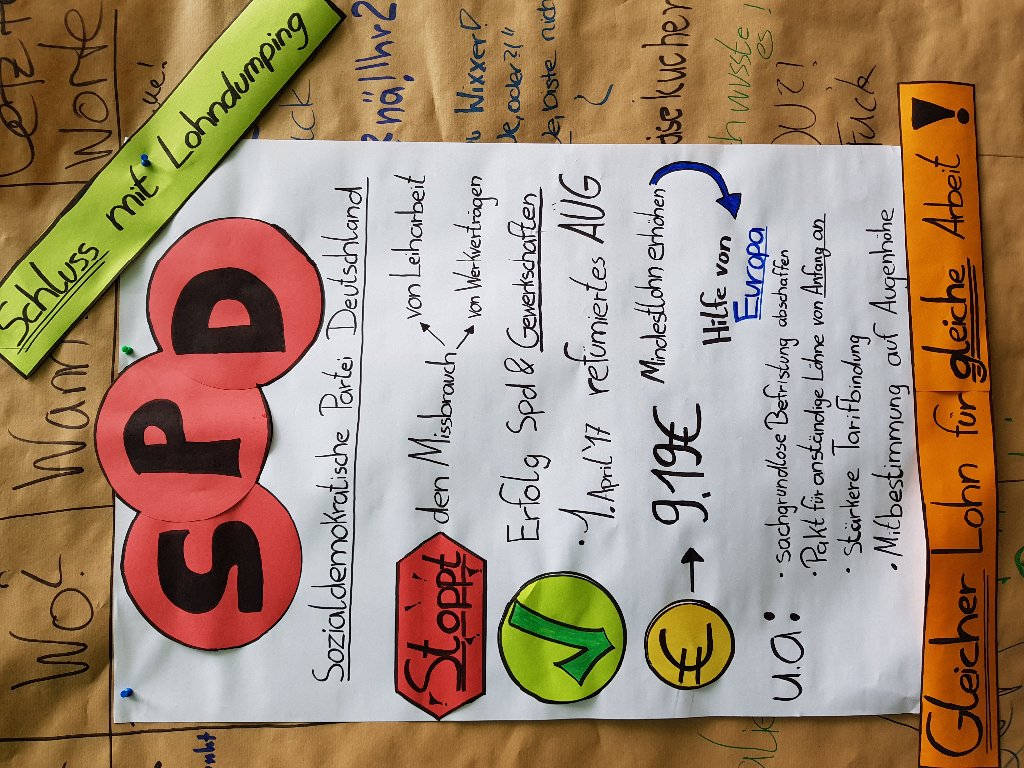 Schluss mit Lohndumping
SPD
Sozialdemokratische Partei Deutschland
Stoppt den Missbrauch
von Leiharbeit
von Werkverträgen
Erfolg Spd & Gewerkschaften
• 1. April '17 refürmiertes AÜG
€ → 9,19€ Mindestlohn erhöhen
Hilfe von
Europa
u.a:
• sachgrundlose Befristung abschaffen
• Pakt für anständige Löhne von Anfang an
• Stärkere Tarifbindung
• Mitbestimmung auf Augenhöhe
Gleicher Lohn für gleiche Arbeit!
Wo?
Wann
Worte
nä! Ihr 2
Wixxer
oder?!"
biste nich
wusste
es!